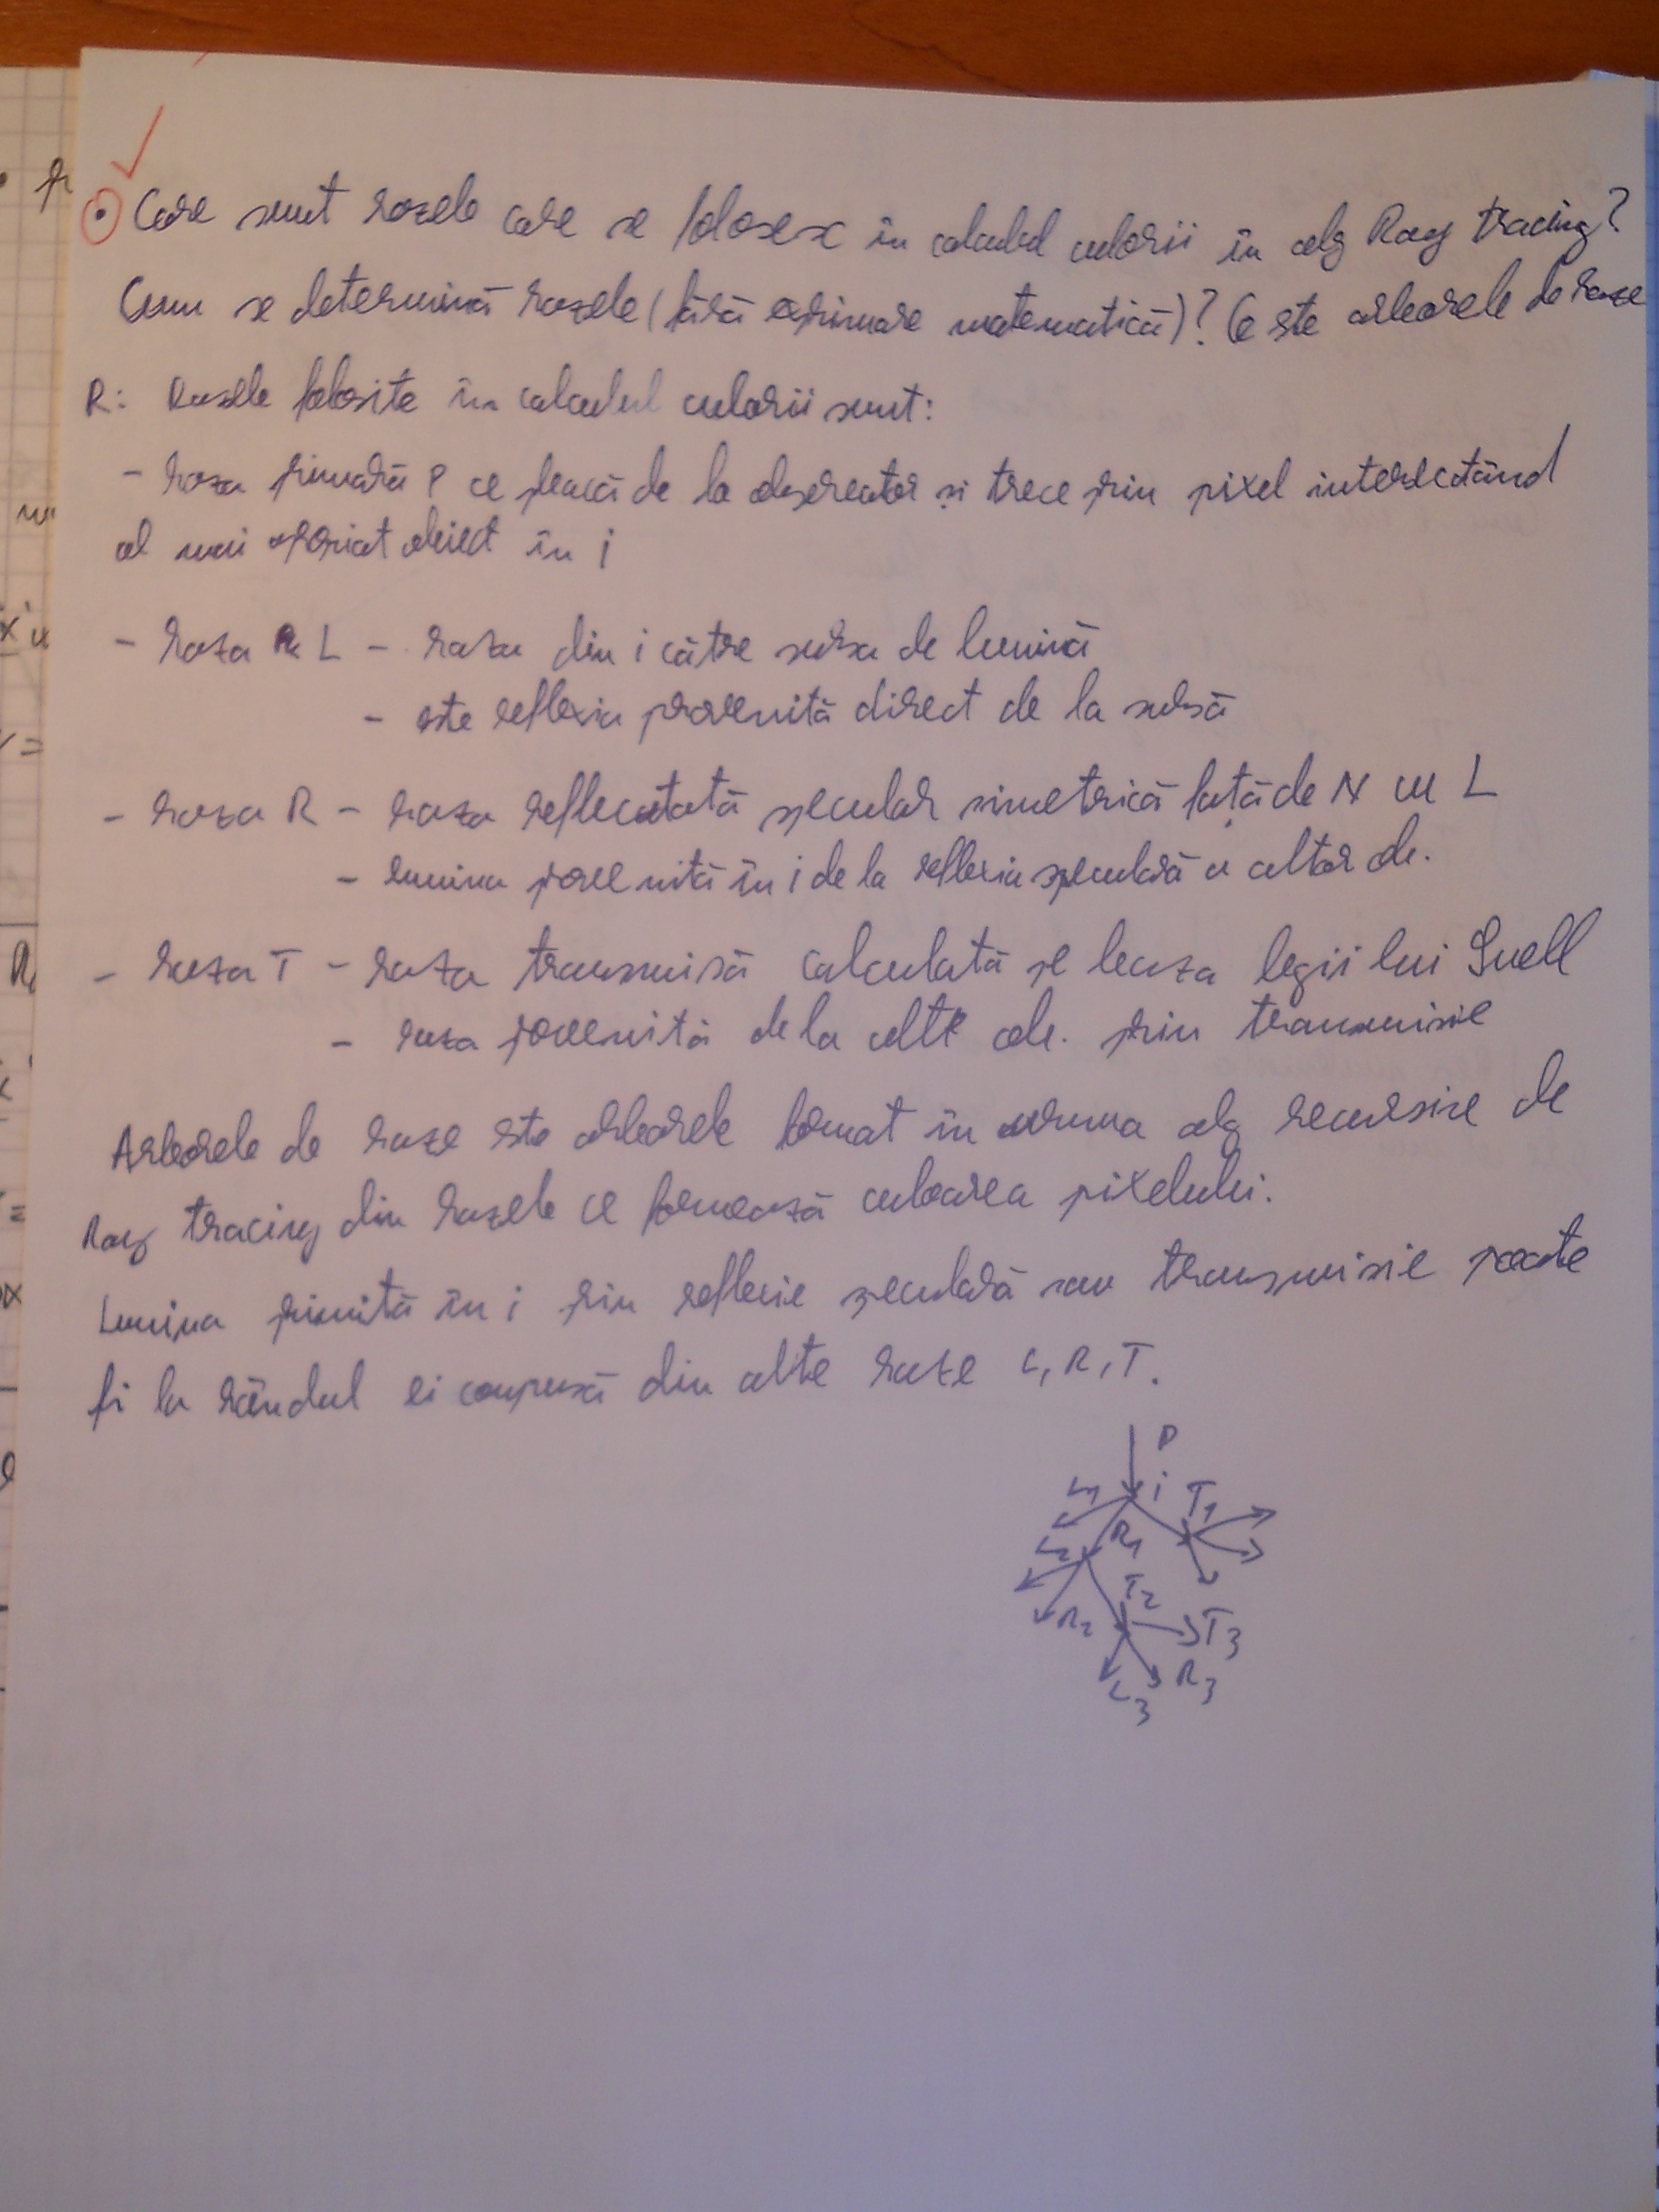 Care sunt razele care se folosesc în calculul culorii în alg Ray tracing?
Cum se determină razele (fără exprimare matematică)? Ce este arborele de raze
R: Razele folosite în calculul culorii sunt:
- raza primară P ce pleacă de la observator și trece prin pixel intersectând
al mai apropiat obiect în i
- raza L - raza din i către sursa de lumină
- este reflexia provenită direct de la sursă
- raza R - raza reflectată specular simetrică față de N cu L
- lumina provenită în i de la reflexia speculară a altor ob.
- raza T - raza transmisă calculată pe baza legii lui Snell
- raza provenită de la alte ob. prin transmisie
Arborele de raze este arborele format în urma alg recursive de
Ray tracing din razele ce formează culoarea pixelului.
Lumina primită în i prin reflexie speculară sau transmisie poate
fi la rândul ei compusă din alte raze L, R, T.
P
L1 i T1
L2 R1
T2
R2 T3
L3 R3